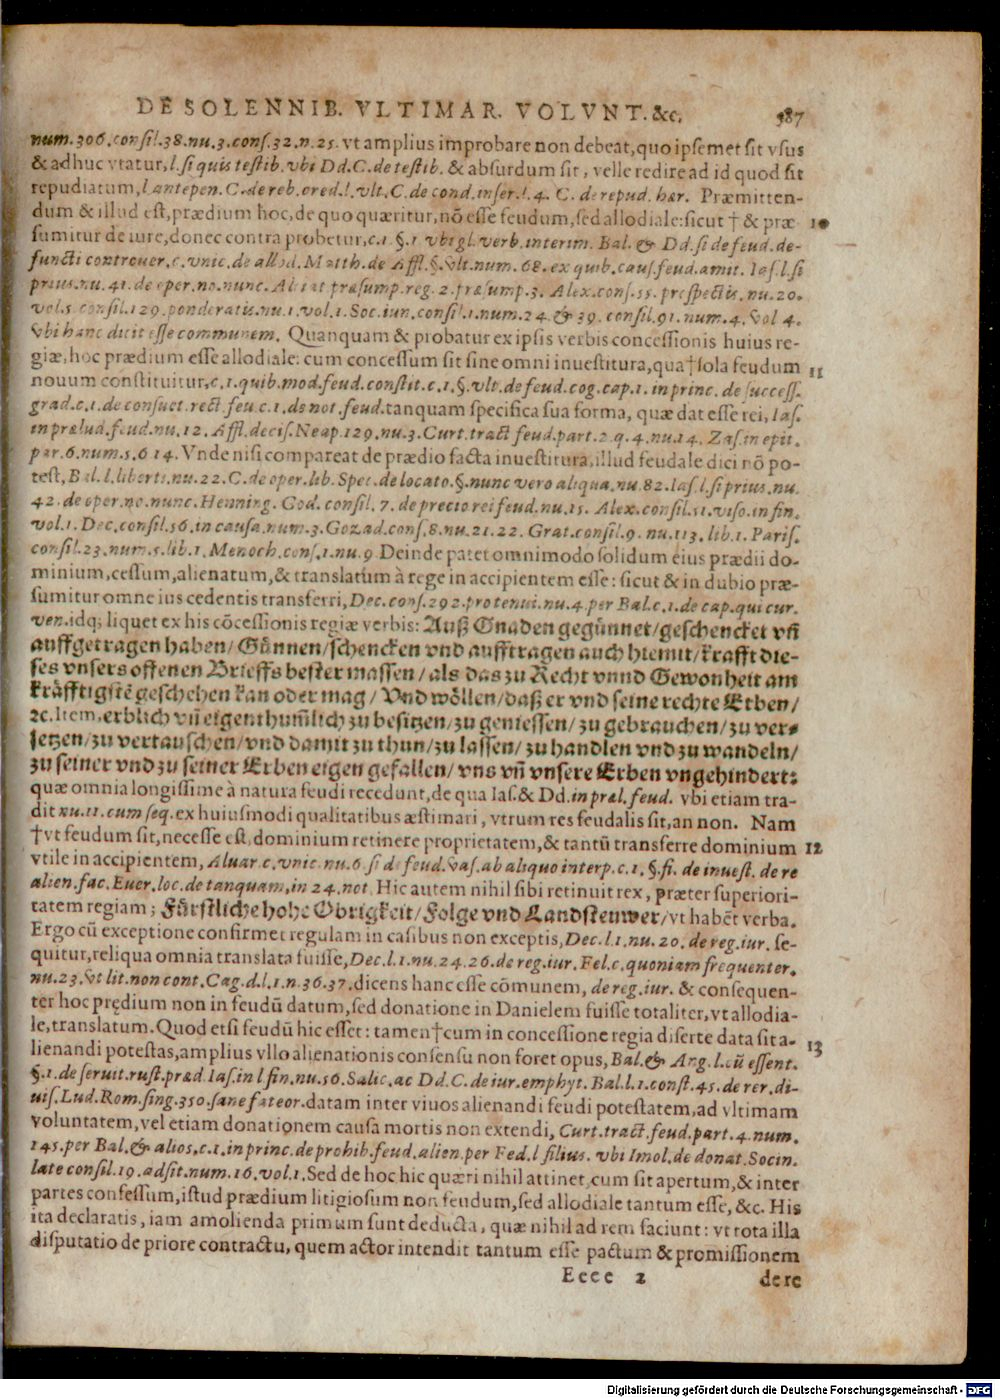 DE SOLENNIB. VLTIMAR. VOLVNT. &c. 587
num. 306. consil. 38. nu. 3. cons. 32. n. 25. vt amplius improbare non debeat, quo ipsemet sit vsus
& adhuc vtatur, l. si quis testib. vbi Dd. C. de testib. & absurdum sit, velle redire ad id quod sit
repudiatum, l. antepen. C. de reb. cred. l. vlt. C. de cond. inser. l. 4. C. de repud. hær. Præmitten-
dum & illud est, prædium hoc, de quo quæritur, nõ esse feudum, sed allodiale: sicut † & præ 10
sumitur de iure, donec contra probetur, c. 1. §. 1. vbi gl. verb. interim. Bal. & Dd. si de feud. de-
functi controuer. c. vnic. de allod. Matth. de Affl. §. vlt. num. 68. ex quib. caus. feud. amit. Ias. l. si
prius. nu. 41. de oper. no. nunc. Alciat præsump. reg. 2. præsump. 3. Alex. cons. 55. prespectis. nu. 20.
vol. 5. consil. 129. ponderatis. nu. 1. vol. 1. Soc. iun. consil. 1. num. 24. & 39. consil. 91. num. 4. vol 4.
vbi hanc dicit esse communem. Quanquam & probatur ex ipsis verbis concessionis huius re-
giæ, hoc prædium esse allodiale: cum concessum sit sine omni inuestitura, qua † sola feudum 11
nouum constituitur, c. 1. quib. mod. feud. constit. c. 1. §. vlt. de feud. cog. cap. 1. in princ. de success.
grad. c. 1. de consuet. rect. feu. c. 1. de not. feud. tanquam specifica sua forma, quæ dat esse rei, Ias.
in prælud. feud. nu. 12. Affl. decis. Neap. 129. nu. 3. Curt. tract feud. part. 2. q. 4. nu. 14. Zas. in epit.
par. 6. num. 5. 6 14. Vnde nisi compareat de prædio facta inuestitura, illud feudale dici nõ po-
test, Bal. l. liberti. nu. 22. C. de oper. lib. Spec. de locato. §. nunc vero aliqua. nu. 82. Ias. l. si prius. nu.
42. de oper. no. nunc. Henning. God. consil. 7. de precio rei feud. nu. 15. Alex. consil. 51. viso. in fin.
vol. 1. Dec. consil. 56. in causa. num. 3. Gozad. cons. 8. nu. 21. 22. Grat. consil. 9. nu. 113. lib. 1. Paris.
consil. 23. num. 5. lib. 1. Menoch. cons. 1. nu. 9 Deinde patet omnimodo solidum eius prædii do-
minium, cessum, alienatum, & translatum à rege in accipientem esse: sicut & in dubio præ-
sumitur omne ius cedentis transferri, Dec. cons. 292. pro tenui. nu. 4. per Bal. c. 1. de cap. qui cur.
ven. idq; liquet ex his cõcessionis regiæ verbis: Auß Gnaden gegünnet/ geschencket vn̄
auffgetragen haben/ Günnen/ schencken vnd aufftragen auch hiemit/ krafft die-
ses vnsers offenen Brieffs bester massen/ als das zu Recht vnnd Gewonheit am
kräfftigstē geschehen kan oder mag/ Vnd wöllen/ daß er vnd seine rechte Erben/
⁊c. Item, erblich vn̄ eigenthum̄lich zu besitzen/ zu geniessen/ zu gebrauchen/ zu ver-
setzen/ zu vertauschen/ vnd damit zu thun/ zu lassen/ zu handlen vnd zu wandeln/
zu seiner vnd zu seiner Erben eigen gefallen/ vns vn̄ vnsere Erben vngehindert:
quæ omnia longissime à natura feudi recedunt, de qua Ias. & Dd. in præl. feud. vbi etiam tra-
dit nu. 11. cum seq. ex huiusmodi qualitatibus æstimari, vtrum res feudalis sit, an non. Nam
† vt feudum sit, necesse est, dominium retinere proprietatem, & tantū transferre dominium 12
vtile in accipientem, Aluar. c. vnic. nu. 6. si d. feud. vas. ab aliquo interp. c. 1. §. fi. de inuest. de re
alien. fac. Euer. loc. de tanquam, in 24. not. Hic autem nihil sibi retinuit rex, præter superiori-
tatem regiam; Fürstliche hohe Obrigkeit/ Folge vnd Landsteuwer/ vt habēt verba.
Ergo cū exceptione confirmet regulam in casibus non exceptis, Dec. l. 1. nu. 20. de reg. iur. se-
quitur, reliqua omnia translata fuisse, Dec. l. 1. nu. 24. 26. de reg. iur. Fel. c. quoniam frequenter.
nu. 23. vt lit. non cont. Cag. d. l. 1. n. 36. 37. dicens hanc esse cōmunem, de reg. iur. & consequen-
ter hoc prędium non in feudū datum, sed donatione in Danielem fuisse totaliter, vt allodia-
le, translatum. Quod etsi feudū hic esset: tamen † cum in concessione regia diserte data sit a- 13
lienandi potestas, amplius vllo alienationis consensu non foret opus, Bal. & Ang. l. cū essent.
§. 1. de seruit. rust. præd. Ias. in l fin. nu. 56. Salic. ac Dd. C. de iur. emphyt. Bal. l. 1. const. 45. de rer. di-
uis. Lud. Rom. sing. 350. sane fateor. datam inter viuos alienandi feudi potestatem, ad vltimam
voluntatem, vel etiam donationem causa mortis non extendi, Curt. tract. feud. part. 4. num.
145. per Bal. & alios, c. 1. in princ. de prohib. feud. alien. per Fed. l filius. vbi Imol. de donat. Socin.
late consil. 19. adsit. num. 16. vol. 1. Sed de hoc hic quæri nihil attinet, cum sit apertum, & inter
partes confessum, istud prædium litigiosum non feudum, sed allodiale tantum esse, &c. His
ita declaratis, iam amolienda primum sunt deducta, quæ nihil ad rem faciunt: vt tota illa
disputatio de priore contractu, quem actor intendit tantum esse pactum & promissionem
Eeee 2 de re
Digitalisierung gefördert durch die Deutsche Forschungsgemeinschaft - DFG